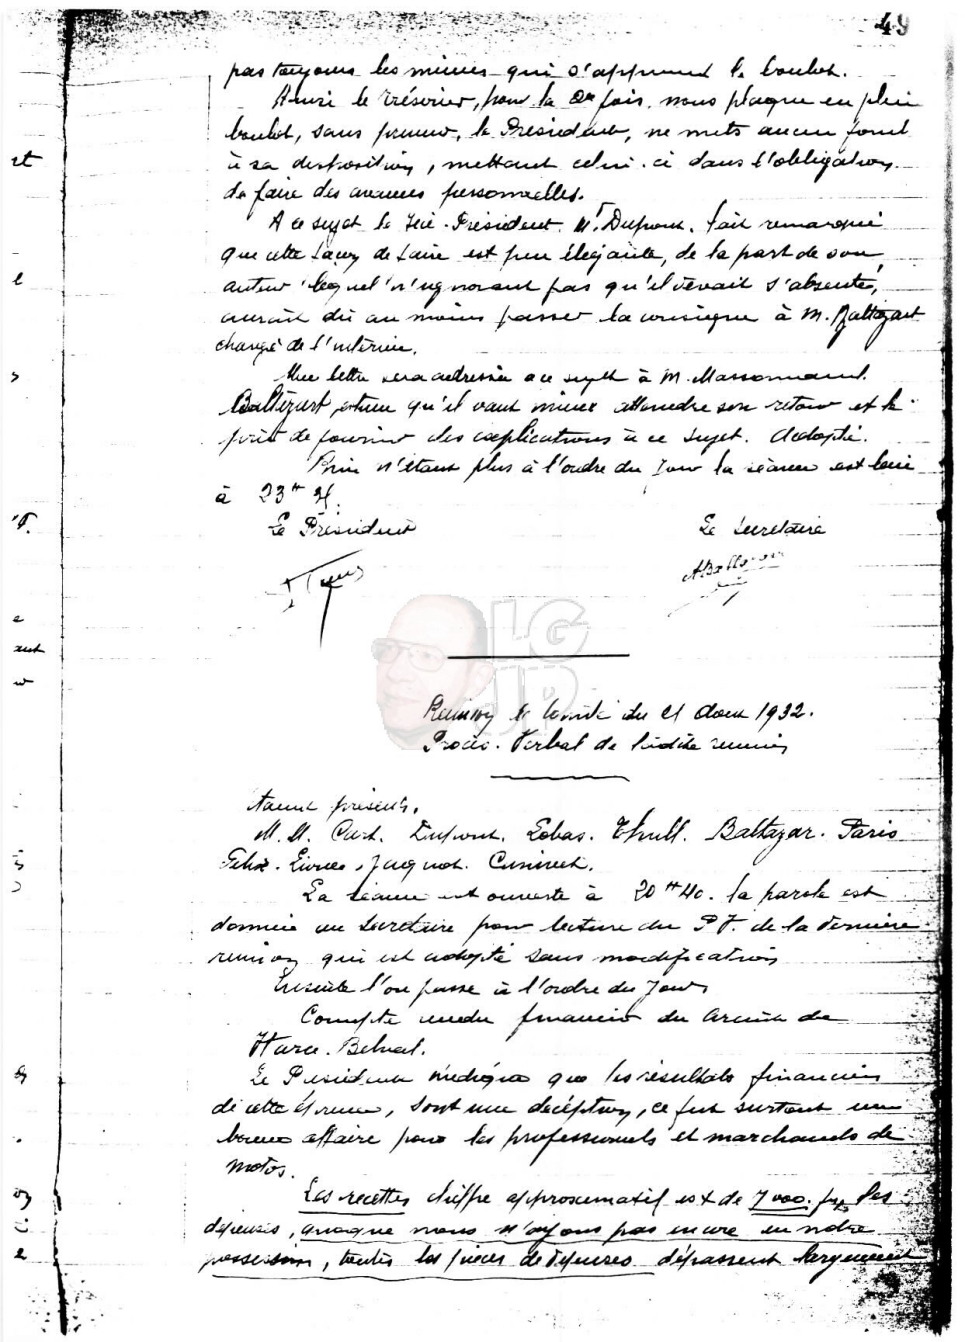 49
pas toujours les mêmes qui s'apprennent le boulot.
le Trésorier, pour la 2e fois, nous plaque en plein
boulot, sans prévenir, le Président, ne mets aucun fond
à sa disposition, mettant celui-ci dans l'obligation
de faire des avances personnelles.
A ce sujet le Vice-Président Mr Dupont, fait remarqué
que cette façon de faire est peu élégante, de la part de son
auteur lequel n'ignorant pas qu'il devait s'absenté,
aurait dû au moins passer la consigne à M. Baltazart
chargé de l'intérim.
Une lettre sera adressée à ce sujet à M.
Baltazart, estime qu'il vaut mieux attendre son retour et le
prié de fournir des explications à ce sujet. Adopté.
Rien n'étant plus à l'ordre du jour la séance est levée
à 23H
Le Président
Le Secrétaire
LG
JP
Réunion de Comité du 21 Aout 1932.
Procès-Verbal de ladite réunion
étaient présents.
M.M. Dupont. Lobas. Thull. Baltazar. Paris
Felix. Jaquot.
La séance est ouverte à 20H40. la parole est
donnée au Secrétaire pour lecture du P.V. de la dernière
réunion qui est adopté sans modification
Ensuite l'on passe à l'ordre du jour
Compte rendu financier du Circuit de
Le Président indiqua que les résultats financiers
de cette épreuve, sont une déception, ce fut surtout une
bonne affaire pour les professionnels et marchands de
motos.
Les recettes chiffre approximatif est de 7000. frs les
dépenses, quoique nous n'ayons pas encore en notre
possession, toutes les pièces de dépenses dépassent largement